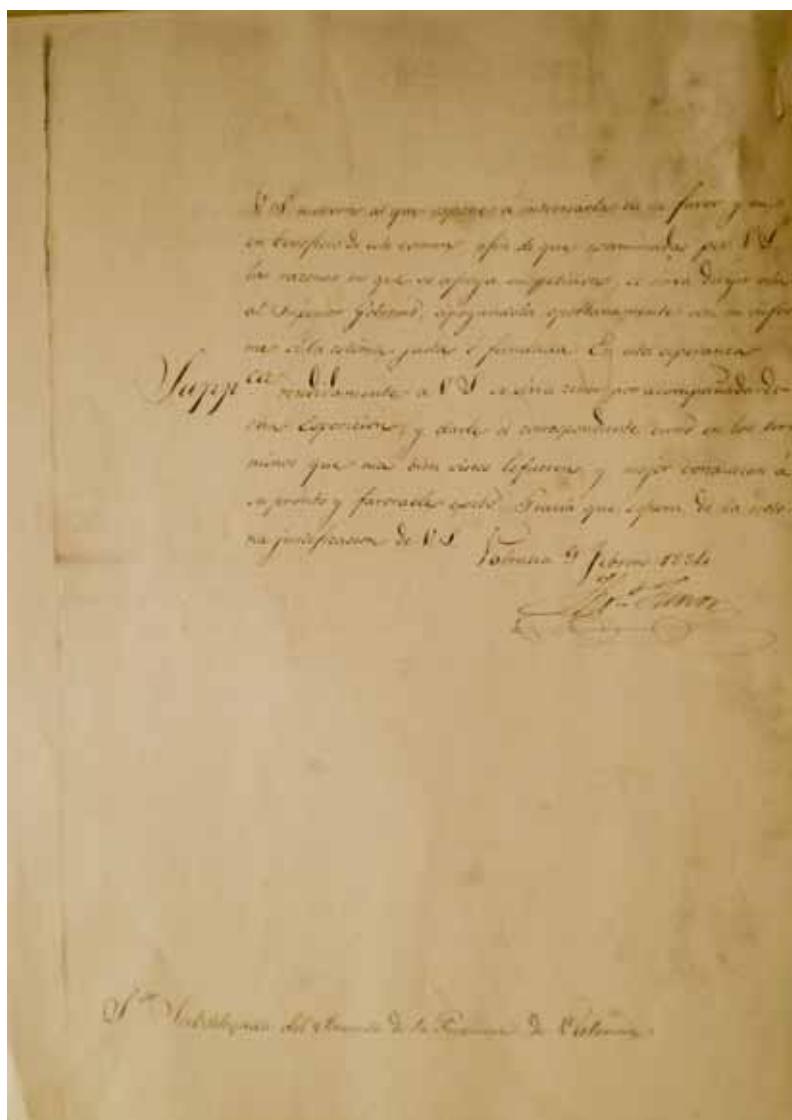 V S mueva al que expone á interesarla en su favor y
en beneficio de este comun afin de que examinadas por V S
las razones en que se apoya se sirva dirijir
al Superior Gobierno, apoyandola oportunamente con su infor
me si la estima justa y fundada. En esta esperanza
Supp.ca rendidamente á V S se sirva
esta Esposicion, y darle el correspondiente curso en los ter
minos que mas bien y mejor conduzcan á
su pronto y favorable exito. Gracia que espera de la noto
ria justificacion de V S. Valencia 9 febrero 1834
S.or Subdelegado del Fomento de la Provincia de Valencia